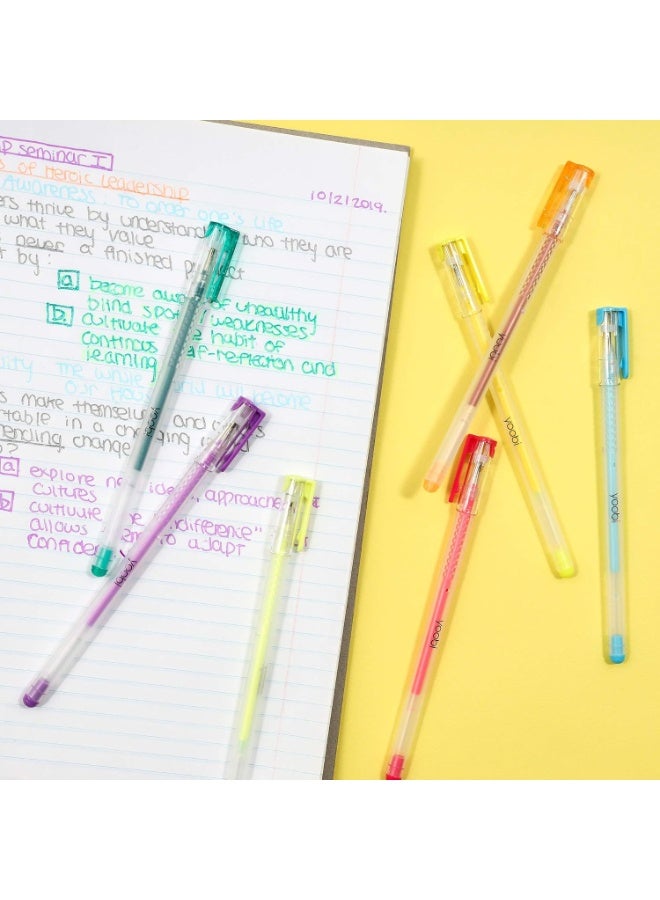 p seminar I
s of Heroic Leadership
10/2/2019.
Awareness: To order one's life
ers thrive by understand who they are
what they value
never a finished project
t by:
a become aware of unhealthy
blind spots / weaknesses
b. cultivate the habit of
continuous
learning, self-reflection and
uity: The whole
Our House will become
s make themselves and
table in a changing
ending change
?
a explore new ideas, approaches
cultures
b cultivate the "indifference"
allows them to adapt
confiden
yoobi
yoobi
yoobi
yoobi
yoobi
yoobi